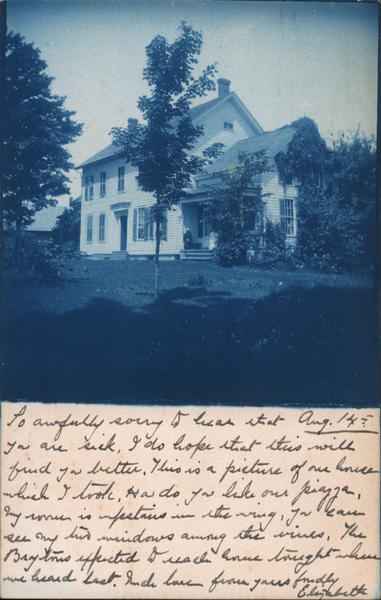 So awfully sorry to hear that Aug. 14th
you are sick, I do hope that this will
find you better, This is a picture of our house
which I took, How do you like our piazza,
My room is upstairs in the wing, you can
see my two windows among the vines, The
expected to reach home tonight when
we heard last. Much love from yours fondly
Elizabeth